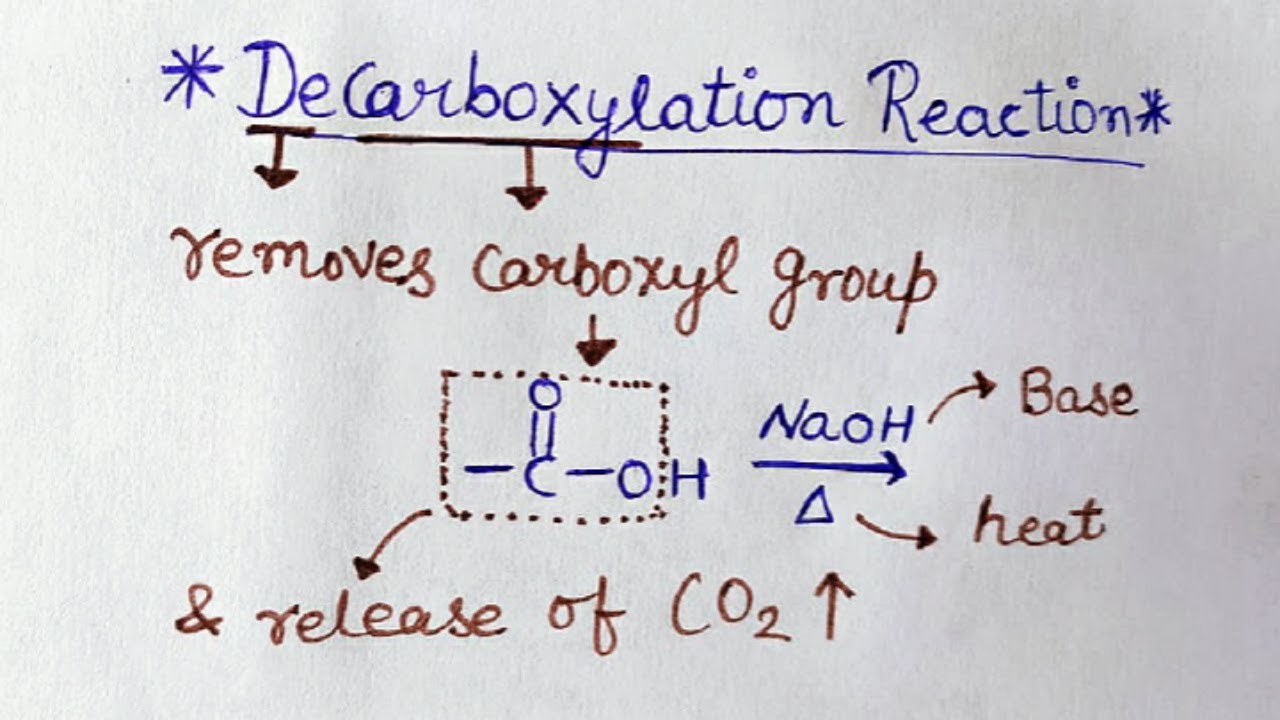 *Decarboxylation Reaction*
removes carboxyl group
O
-C-OH NaOH Base
Δ heat
& release of CO₂ ↑